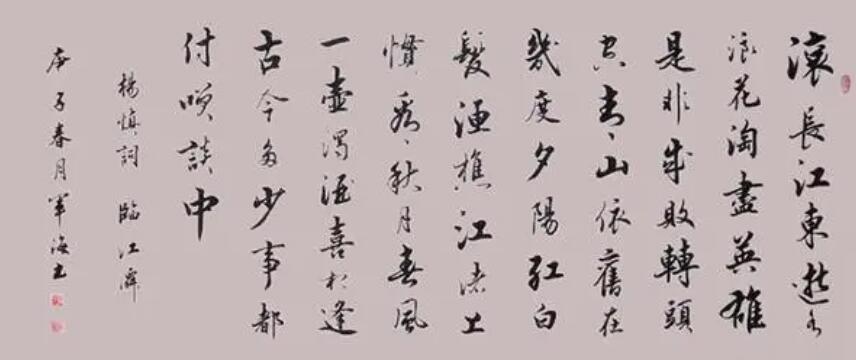 滾長江東逝水
浪花淘盡英雄
是非成敗轉頭
空青山依舊在
幾度夕陽紅白
髮漁樵江渚上
慣看秋月春風
一壺濁酒喜相逢
古今多少事都
付笑談中
楊慎詞 臨江僊
庚子春月軍海书